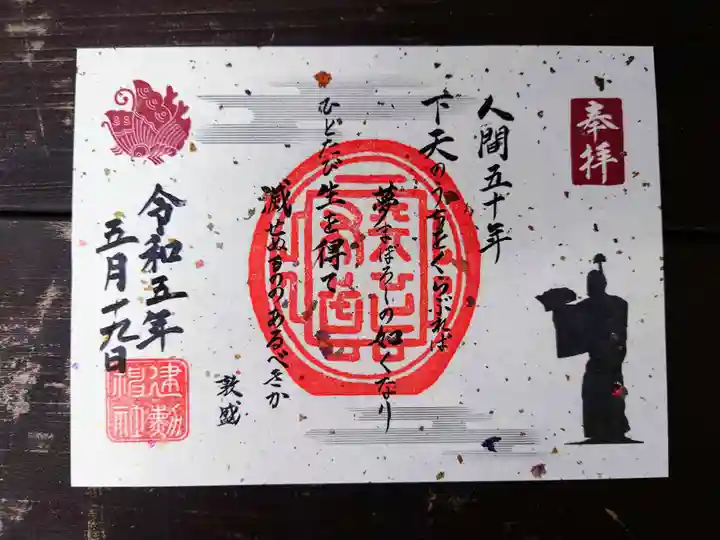 奉拝
人間五十年
下天のうちをくらぶれば
夢まぼろしの如くなり
ひとたび生を得て
滅せぬもののあるべきか
敦盛
令和五年
三月十九日
建勲
神社